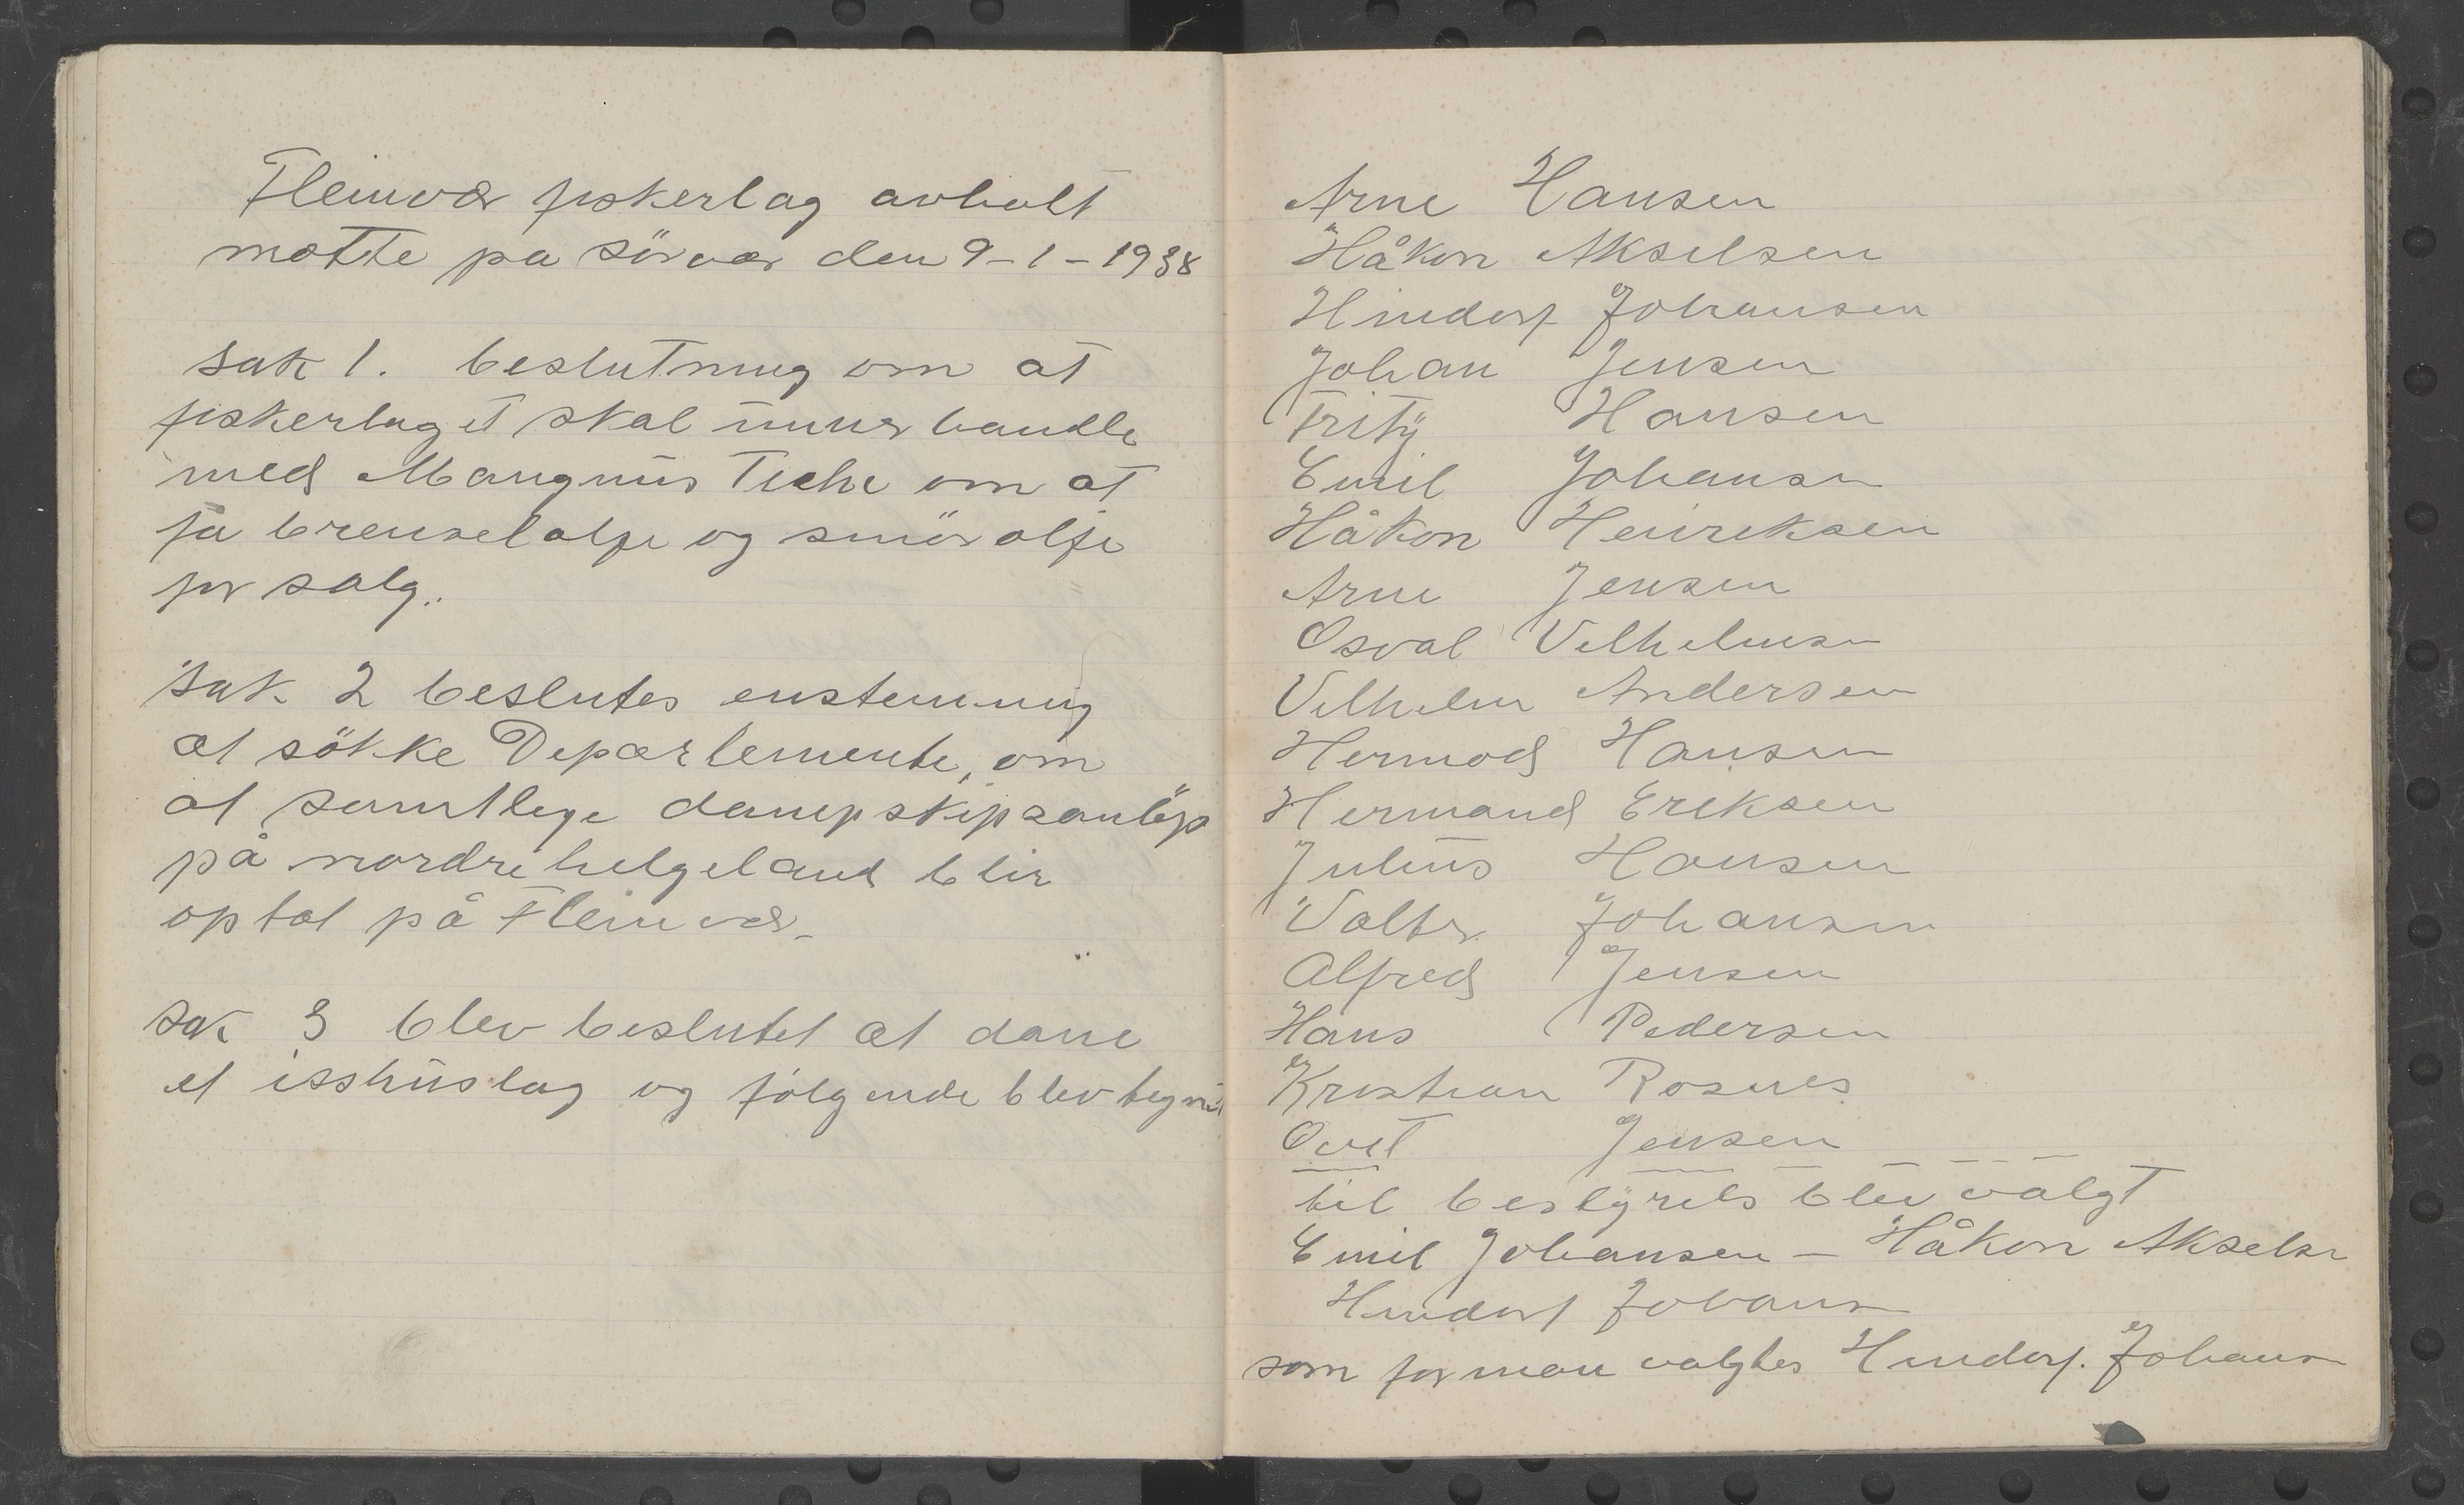 Fleinvær fiskerlag avholt
møtte på Sörvær den 9-1-1938
sak 1. beslutning om at
fiskerlaget skal unnerhandle
med Mangnus Tiche om at
få brenselolje og smörolje
for salg.
Sak 2 beslutes enstemmig
at sökke Departemente, om
at samtlige dampskipsanlöp
på nordre helgeland blir
optat på Fleinvær
sak 3 blev beslutet at dane
et isshuslag og følgende blev tegnet
Arne Hansen
Håkon Akselsen
Hindorf Johansen
Johan Jensen
Fritz Hansen
Emil Johansen
Håkon Henriksen
Arne Jensen
Osval Vilhelmsen
Vilhelm Andersen
Hermod Hansen
Hermand Eriksen
Julius Hansen
Valter Johansen
Alfred Jensen
Hans Pedersen
Kristian Rosnes
Ovit Jensen
til bestyrels blev valgt
Emil Johansen – Håkon Akselsen
Hindorf Johansen
som forman valgtes Hindorf Johansen